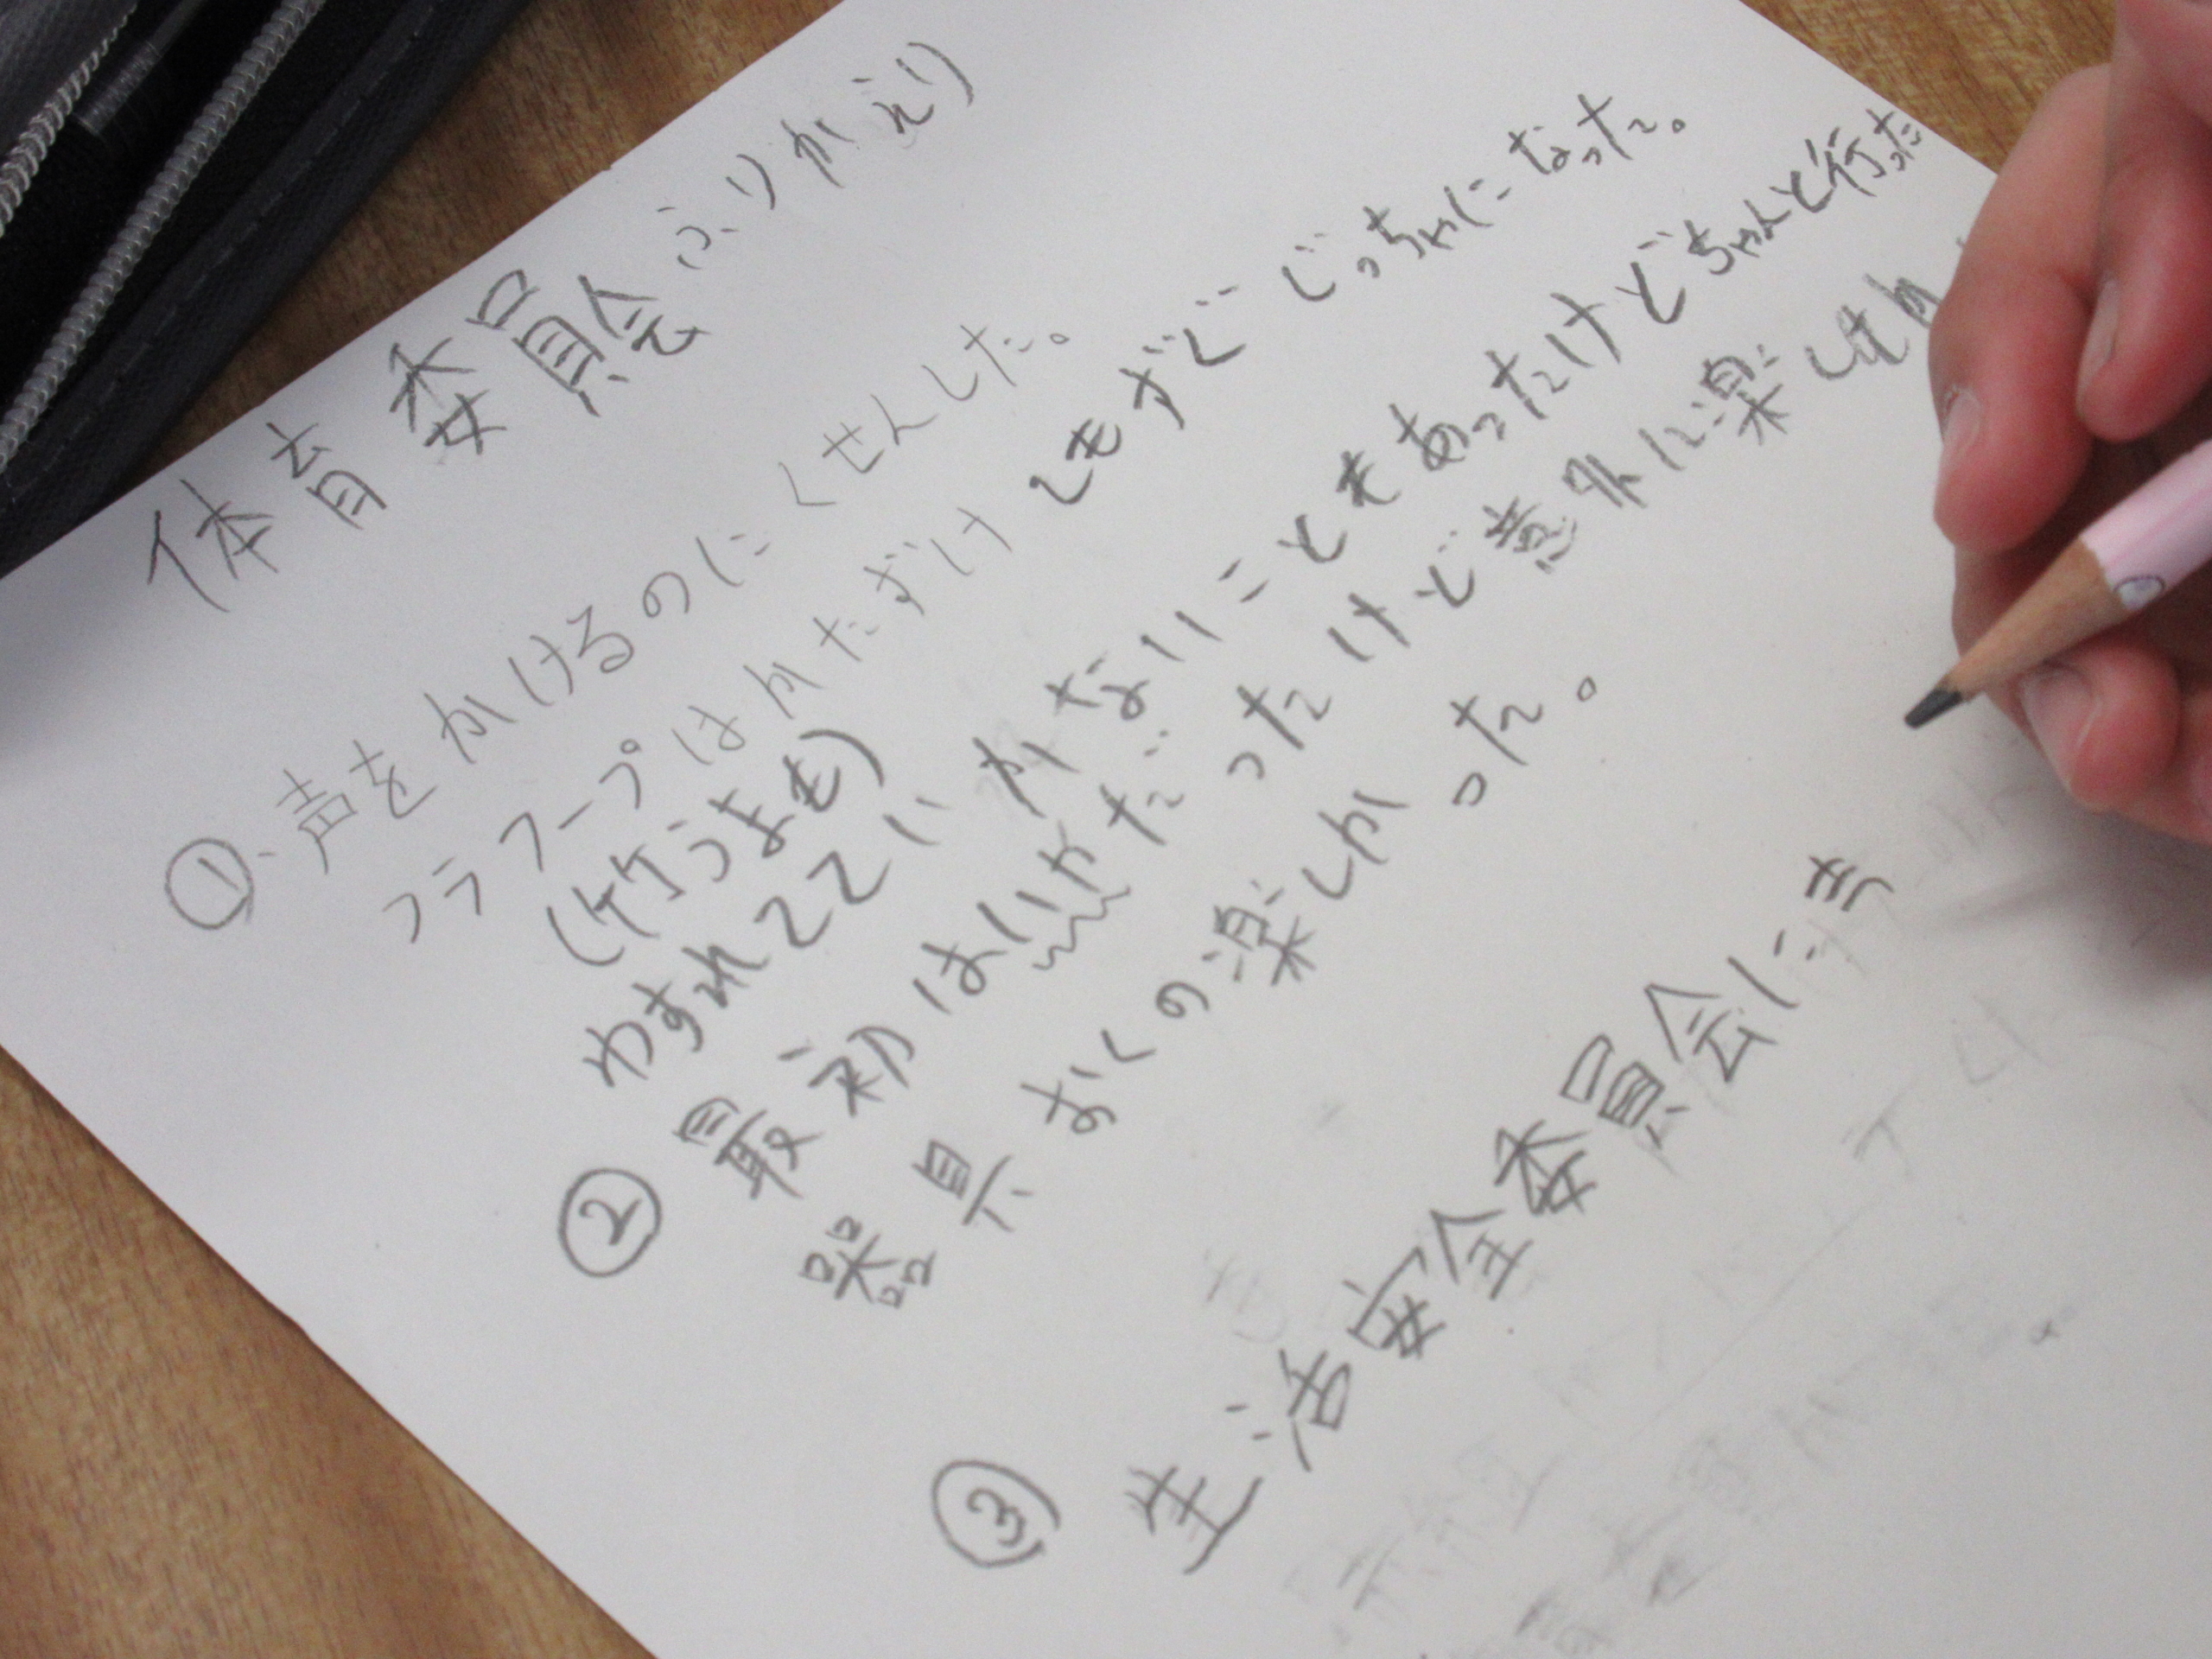 体育委員会ふりかえり
①声をかけるのにくせんした。
フラフープはかたずけてもすぐぐじっちゃになった。
(竹うまも)
わすれてていかないこともあったけどちゃんと行った
②最初はいやだったけど意外に楽しか
器具おくの楽しかった。
③生活安全委員会に